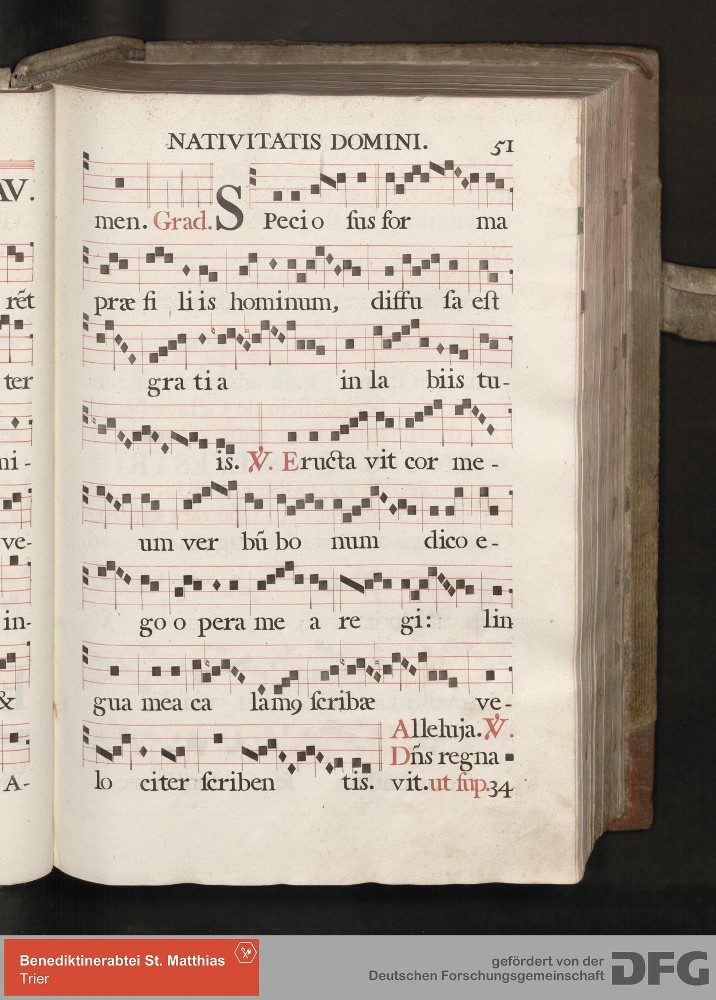 NATIVITATIS DOMINI. 51
men. Grad. S Pecio sus for ma
præ fi liis hominum, diffu sa est
gra tia in la biis tu-
is. ℣. Eructa vit cor me-
um ver bū bo num dico e-
go o pera me a re gi: lin
gua mea ca lamꝰ scribæ ve-
lo citer scriben tis.
Alleluja. ℣.
Dñs regna
vit. ut sup. 34
AV.
rēt
ter
ni-
ve-
in-
&
A-
Benediktinerabtei St. Matthias
Trier
gefördert von der
Deutschen Forschungsgemeinschaft
DFG